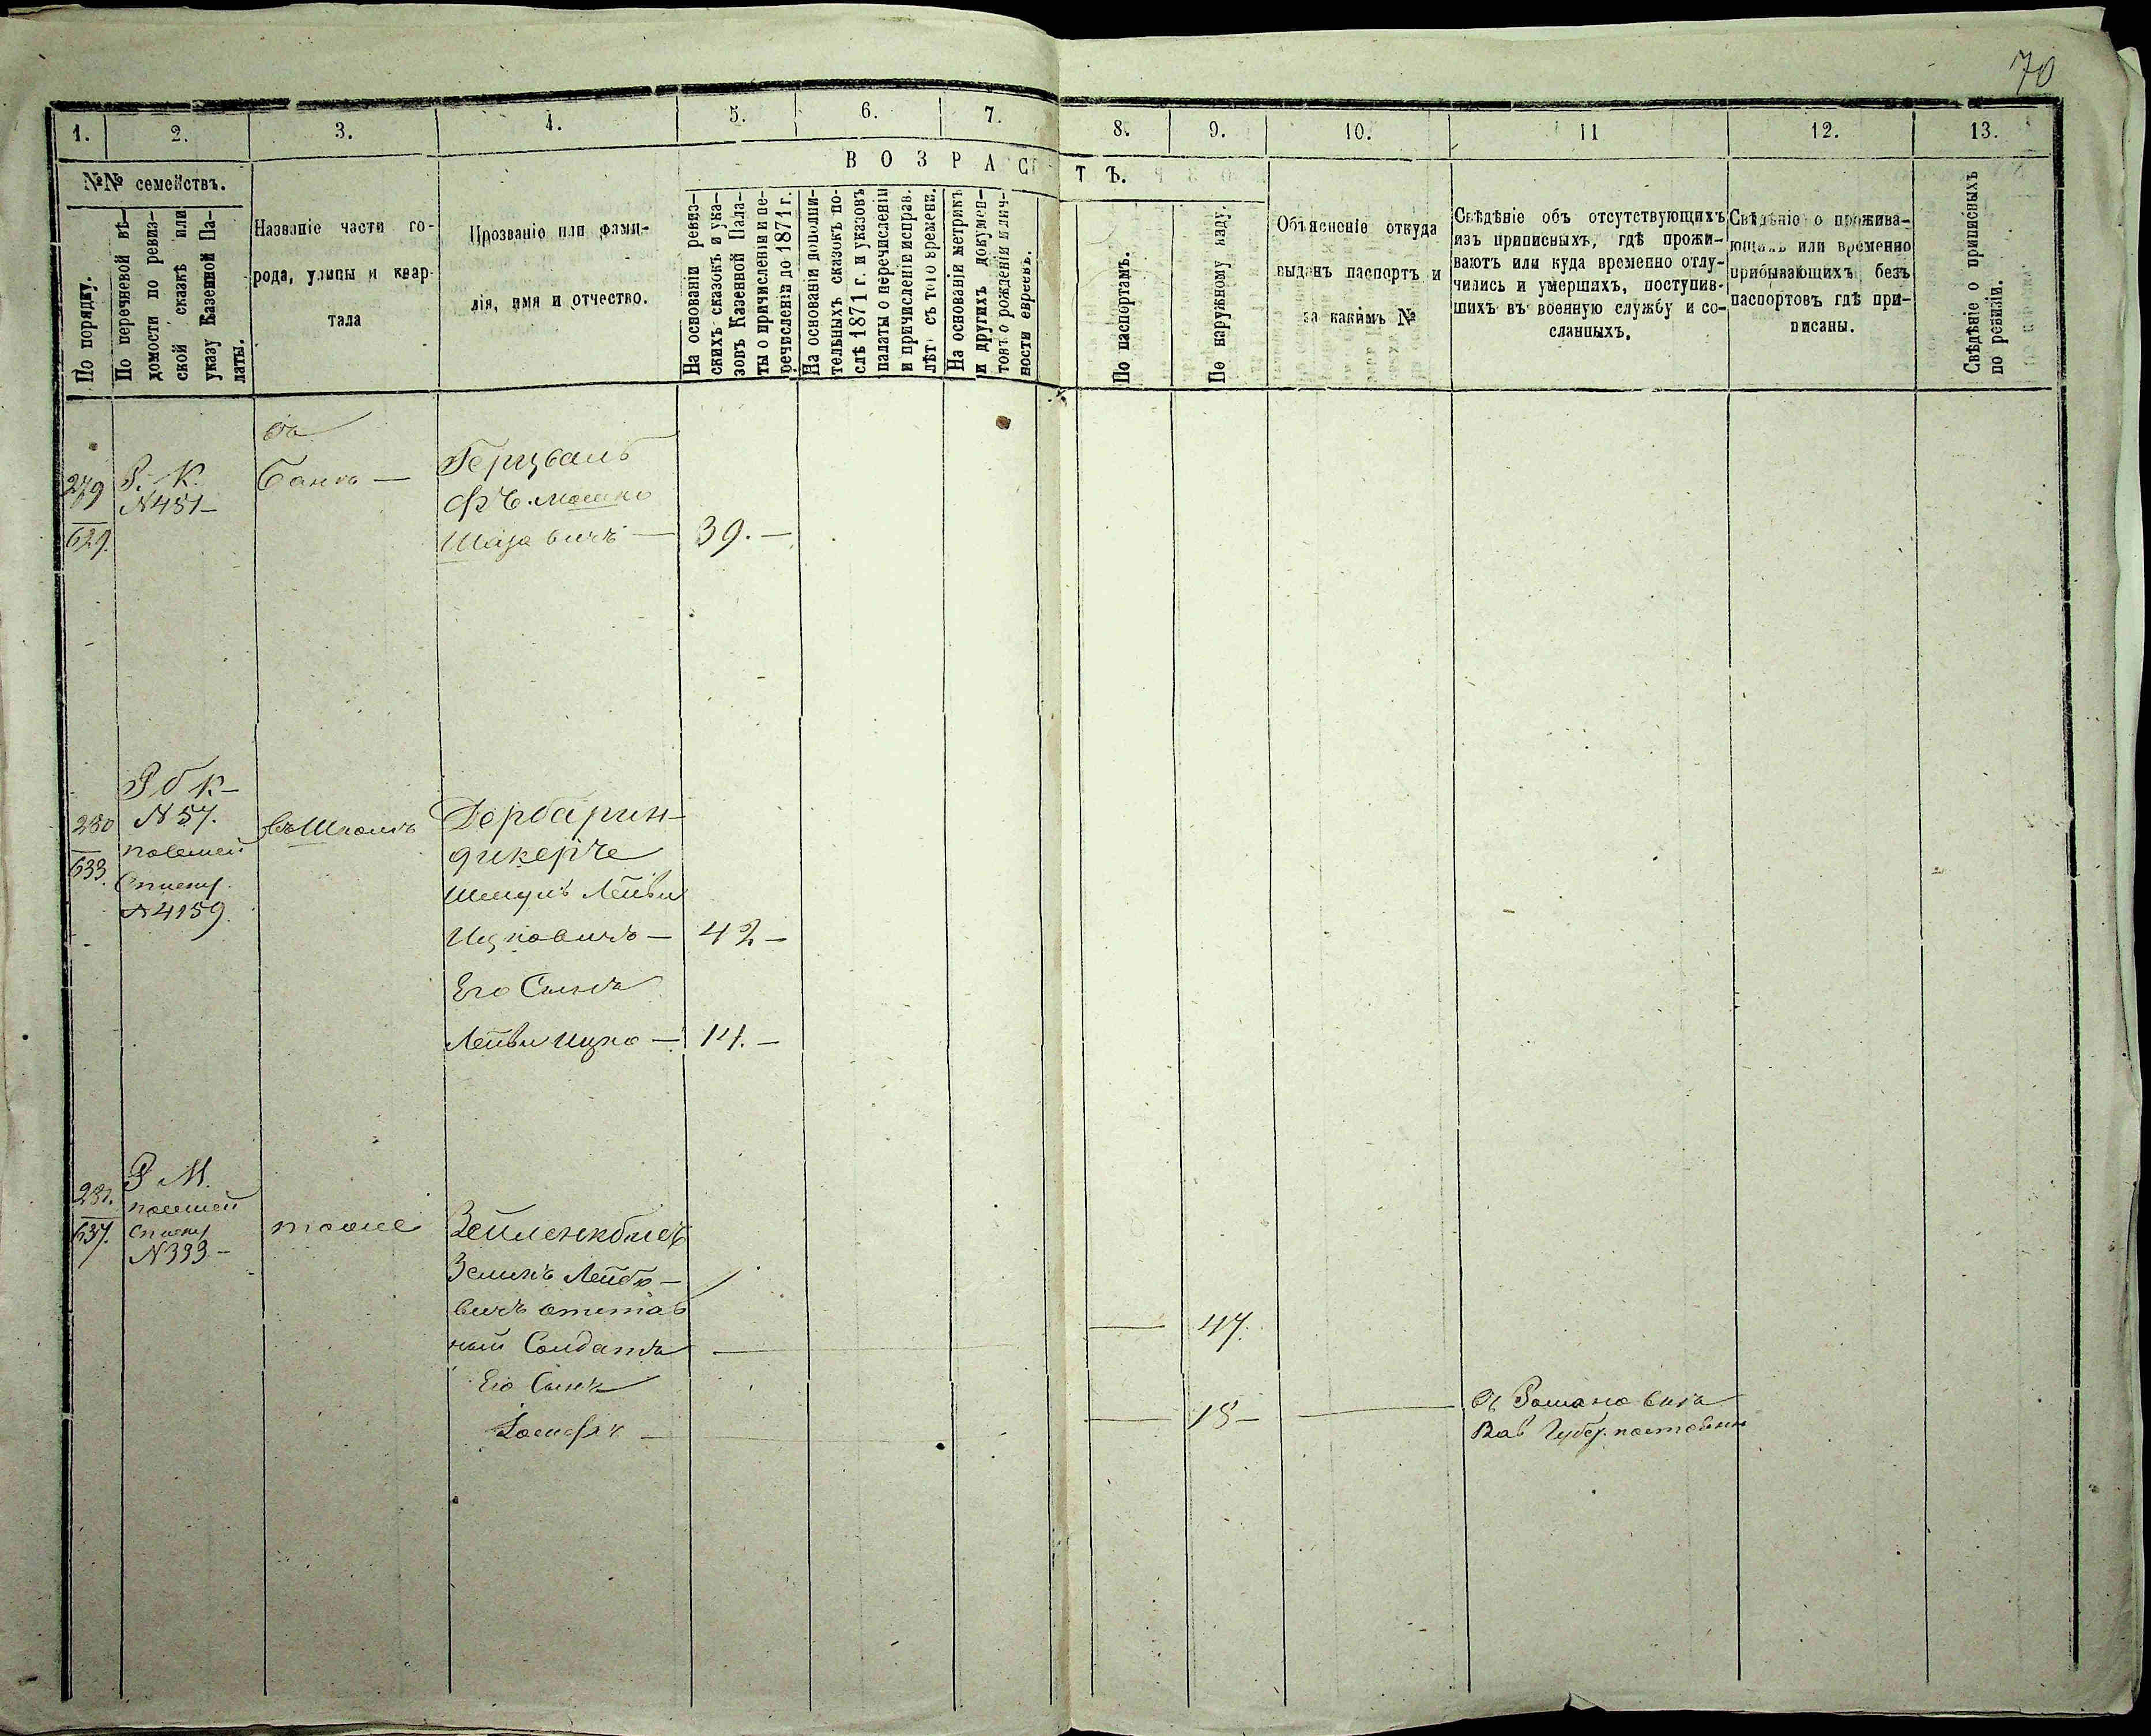 70
1. 2. 3. 4. 5. 6. 7. 8. 9. 10. 11 12. 13.
В О З Р А С Т Ъ.
№№ семействъ.
По порядку.
По перечневой вѣ-
домости по ревиз-
ской сказкѣ или
указу Казенной Па-
латы.
Названіе части го-
рода, улицы и квар-
тала
Прозваніе или фами-
лія, имя и отчество.
На основаніи ревиз-
скихъ сказокъ и ука-
зовъ Казенной Пала-
ты о причисленіи и пе-
речисленіи до 1871 г.
На основаніи дополни-
тельныхъ сказокъ по-
слѣ 1871 г. и указовъ
палаты о перечисленіи
и причисленіе исправ.
лѣт. съ того времени.
На основаніи метрикъ
и другихъ докумен-
товъ о рожденіи и лич-
ности евреевъ.
По паспортамъ.
По наружному виду.
Объясненіе откуда
выданъ паспортъ и
за какимъ №
Свѣдѣніе объ отсутствующихъ
изъ приписныхъ, гдѣ прожи-
ваютъ или куда временно отлу-
чились и умершихъ, поступив-
шихъ въ военную службу и со-
сланныхъ.
Свѣдѣніе о прожива-
ющихъ или временно
прибывающихъ безъ
паспортовъ гдѣ при-
писаны.
Свѣдѣніе о приписныхъ
по ревизіи.
279
629.
Р. К.
N 451 —
въ
—
Герцваль
Мошко
39. —
280
633.
Р б К —
N 57.
Списку
N 4159.
въ
Дербарин-
дикерче
Шмуль Лейви
Ицковичъ — 42 —
Его Сынъ
Лейви Ицко — 14. —
281.
637.
Р М.
Списку
N 333 —
тоже
Лейбо-
вичъ отстав
ный Солдатъ — 47.
Его Сынъ
— 18 —
Губер.